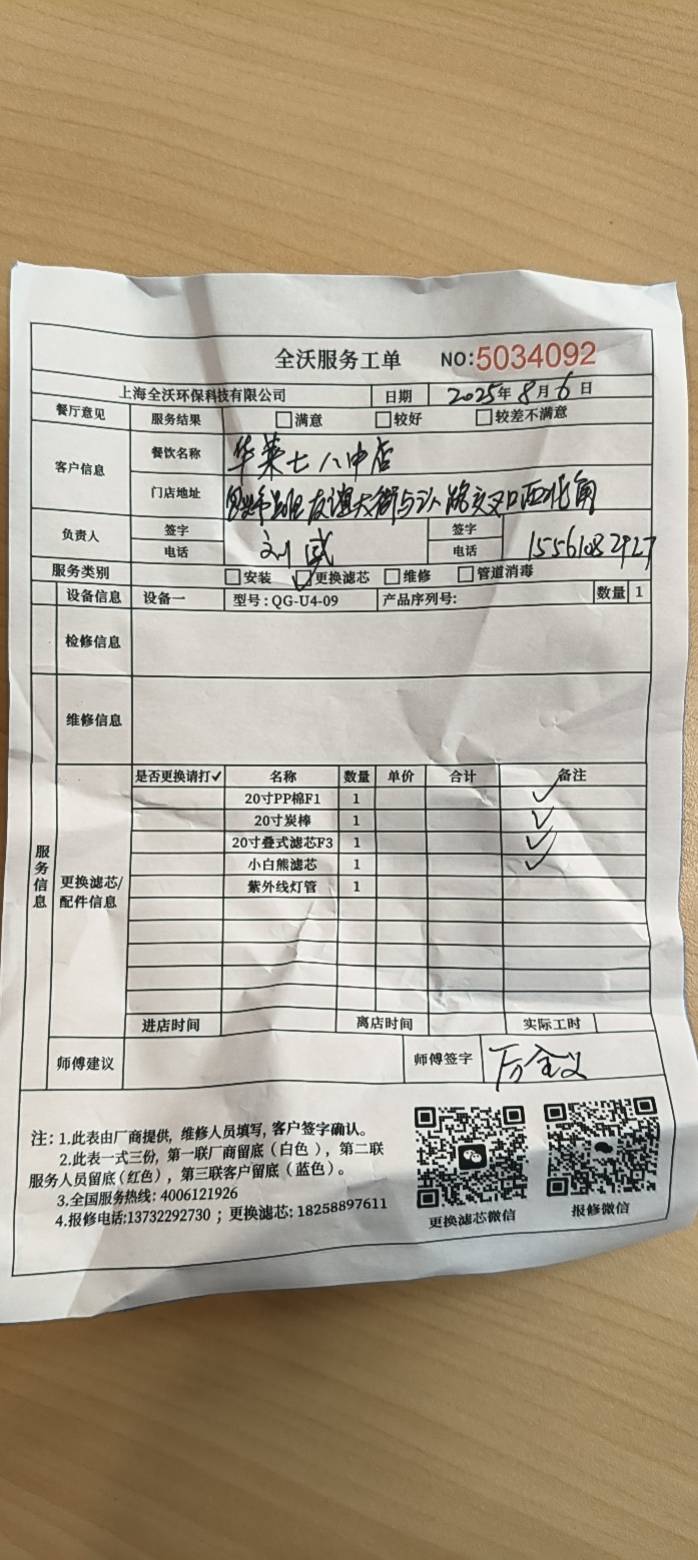 全沃服务工单 NO:5034092
上海全沃环保科技有限公司 日期 2025年8月6日
餐厅意见 服务结果 □满意 □较好 □较差不满意
客户信息 餐饮名称 华莱士八中店
门店地址 友谊大街与 路交叉口西北角
负责人 签字 刘威 签字
电话 电话 15561082927
服务类别 □安装 □更换滤芯 □维修 □管道消毒
设备信息 设备一 型号:QG-U4-09 产品序列号: 数量 1
检修信息
维修信息
服务信息
更换滤芯/配件信息
是否更换请打✓ 名称 数量 单价 合计 备注
20寸PP棉F1 1 ✓
20寸炭棒 1 ✓
20寸叠式滤芯F3 1 ✓
小白熊滤芯 1 ✓
紫外线灯管 1
进店时间 离店时间 实际工时
师傅建议 师傅签字
注: 1.此表由厂商提供, 维修人员填写, 客户签字确认。
2.此表一式三份, 第一联厂商留底(白色), 第二联
服务人员留底(红色), 第三联客户留底(蓝色)。
3.全国服务热线: 4006121926
4.报修电话:13732292730 ; 更换滤芯: 18258897611
更换滤芯微信 报修微信